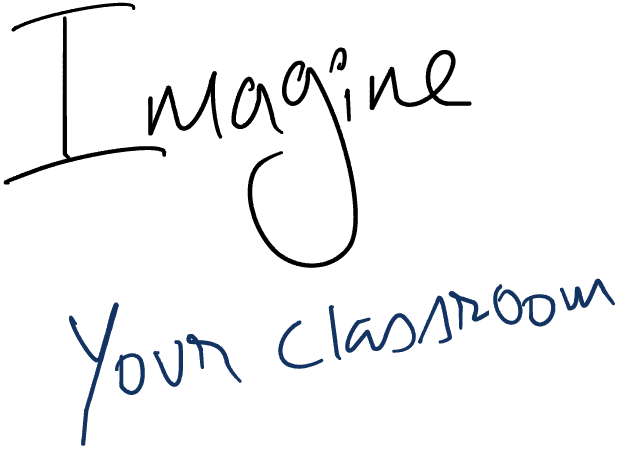 Imagine
Your classroom